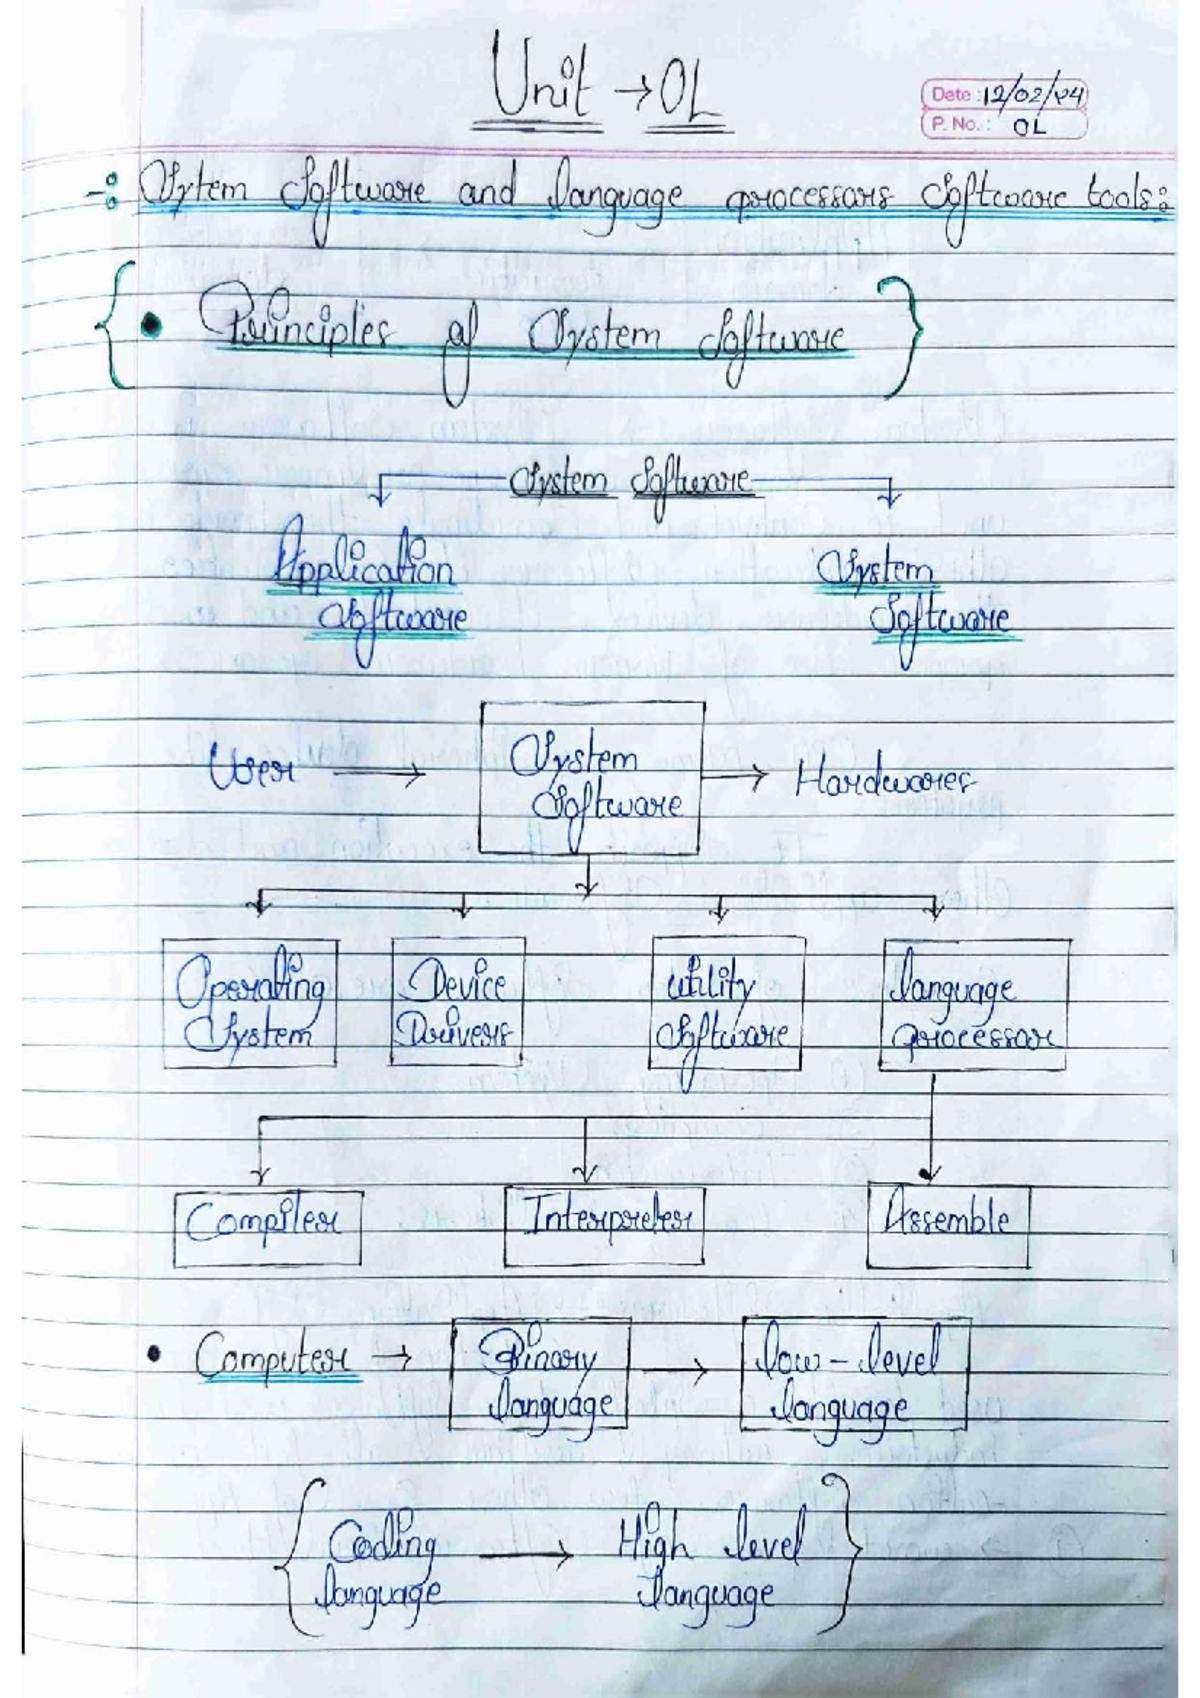 Unit → 01
Date : 12/02/24
P. No. : 01
-: Sytem Software and language processors Software tools:
{ • Principles of System Software }
System Software
Application System
Software Software
User → System Software → Hardwares
Operating System Device Drivers Utility Software language processor
Compiler Interpreter Assemble
• Computer → Binary language → low-level language
{ Coding language → High level language }